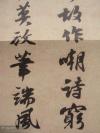 故作嘲詩窮
莫放筆端風